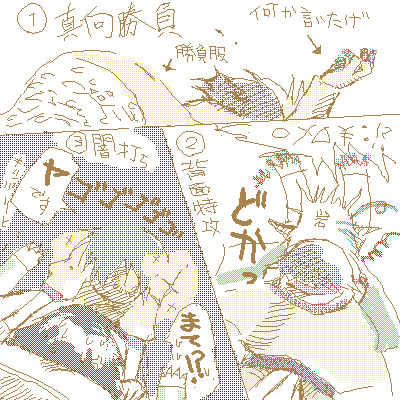 ① 真向勝負
何か言いたげ
勝負服
② 背面特攻
どかっ
岩
③ 闇打ち
ヤです
ゴゴゴゴゴ
まて!?